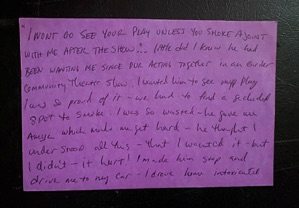 I WONT GO SEE YOUR PLAY UNLESS YOU SMOKE A JOINT
WITH ME AFTER THE SHOW... Little did I know he had
BEEN WANTING ME SINCE OUR ACTING TOGETHER in an Earlier
Community Theater show. I wanted him to see my play
I was so proud of it - we had to find a secluded
SPOT to smoke. I was so wasted - he gave me
which made me get hard - he thought I
under stood all this - that I wanted it - but
I didn't - it hurt! I made him stop and
drive me to my car - I drove home intoxicated